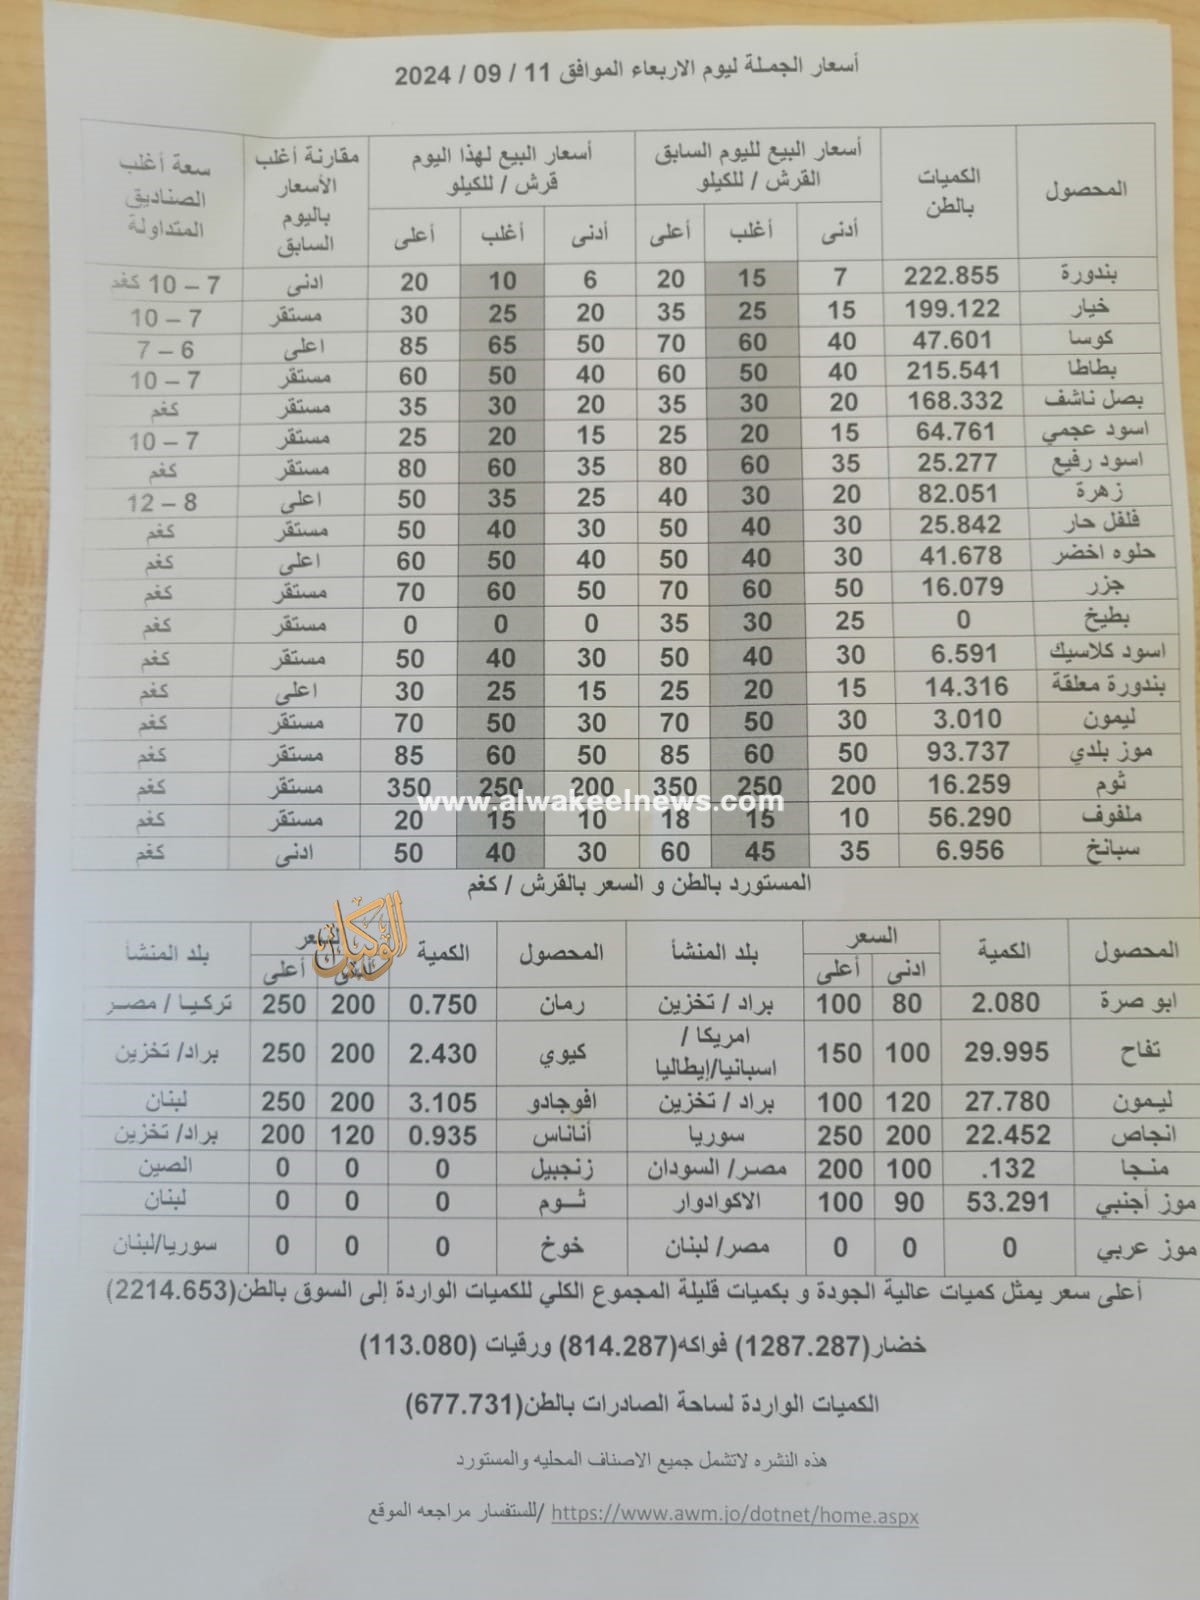 أسعار الجملة ليوم الاربعاء الموافق 11 / 09 / 2024
المحصول الكميات بالطن أسعار البيع لليوم السابق القرش / للكيلو أسعار البيع لهذا اليوم قرش / للكيلو مقارنة أغلب الأسعار باليوم السابق سعة أغلب الصناديق المتداولة
أدنى أغلب أعلى أدنى أغلب أعلى
بندورة 222.855 7 15 20 6 10 20 ادنى 7 – 10 كغم
خيار 199.122 15 25 35 20 25 30 مستقر 7 – 10
كوسا 47.601 40 60 70 50 65 85 اعلى 6 – 7
بطاطا 215.541 40 50 60 40 50 60 مستقر 7 – 10
بصل ناشف 168.332 20 30 35 20 30 35 مستقر كغم
اسود عجمي 64.761 15 20 25 15 20 25 مستقر 7 – 10
اسود رفيع 25.277 35 60 80 35 60 80 مستقر كغم
زهرة 82.051 20 30 40 25 35 50 اعلى 8 – 12
فلفل حار 25.842 30 40 50 30 40 50 مستقر كغم
حلوه اخضر 41.678 30 40 50 40 50 60 اعلى كغم
جزر 16.079 50 60 70 50 60 70 مستقر كغم
بطيخ 0 25 30 35 0 0 0 مستقر كغم
اسود كلاسيك 6.591 30 40 50 30 40 50 مستقر كغم
بندورة معلقة 14.316 15 20 25 15 25 30 اعلى كغم
ليمون 3.010 30 50 70 30 50 70 مستقر كغم
موز بلدي 93.737 50 60 85 50 60 85 مستقر كغم
ثوم 16.259 200 250 350 200 250 350 مستقر كغم
www.alwakeelnews.com
ملفوف 56.290 10 15 18 10 15 20 مستقر كغم
سبانخ 6.956 35 45 60 30 40 50 ادنى كغم
المستورد بالطن و السعر بالقرش / كغم
الوكيل
المحصول الكمية السعر بلد المنشأ المحصول الكمية السعر بلد المنشأ
ادنى أعلى أعلى
ابو صرة 2.080 80 100 براد / تخزين رمان 0.750 200 250 تركيا / مصر
تفاح 29.995 100 150 امريكا / اسبانيا/إيطاليا كيوي 2.430 200 250 براد/ تخزين
ليمون 27.780 120 100 براد / تخزين افوجادو 3.105 200 250 لبنان
انجاص 22.452 200 250 سوريا أناناس 0.935 120 200 براد/ تخزين
منجا 132. 100 200 مصر/ السودان زنجبيل 0 0 0 الصين
موز أجنبي 53.291 90 100 الاكوادوار ثوم 0 0 0 لبنان
موز عربي 0 0 0 مصر/ لبنان خوخ 0 0 0 سوريا/لبنان
أعلى سعر يمثل كميات عالية الجودة و بكميات قليلة المجموع الكلي للكميات الواردة إلى السوق بالطن(2214.653)
خضار(1287.287) فواكه(814.287) ورقيات (113.080)
الكميات الواردة لساحة الصادرات بالطن(677.731)
هذه النشره لاتشمل جميع الاصناف المحليه والمستورد
للستفسار مراجعه الموقع/ https://www.awm.jo/dotnet/home.aspx